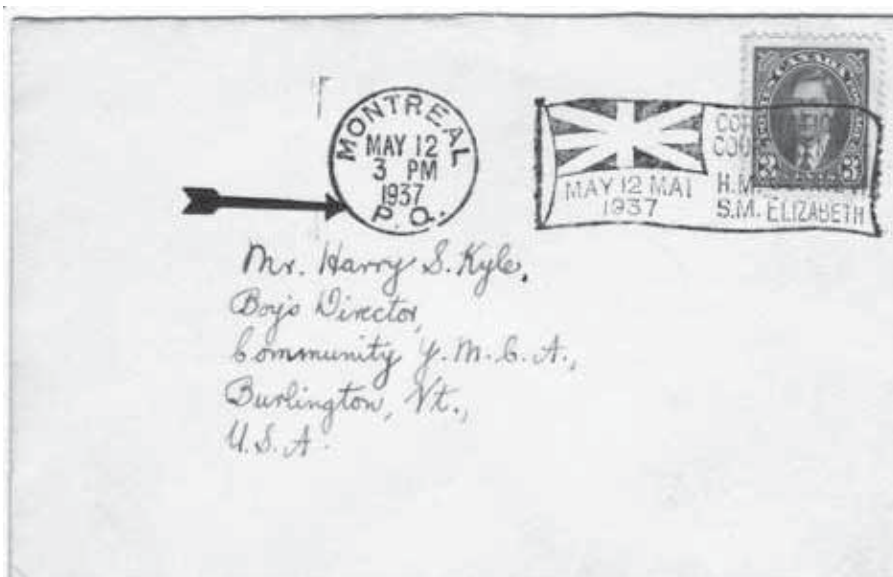 MONTREAL
MAY 12
3 PM
1937
P.Q.
MAY 12 MAI
1937
H.M.
S.M. ELIZABETH
CANADA
3 3
Mr. Harry S. Kyle,
Boy's Director,
Community Y.M.C.A.,
Burlington, Vt.,
U.S.A.